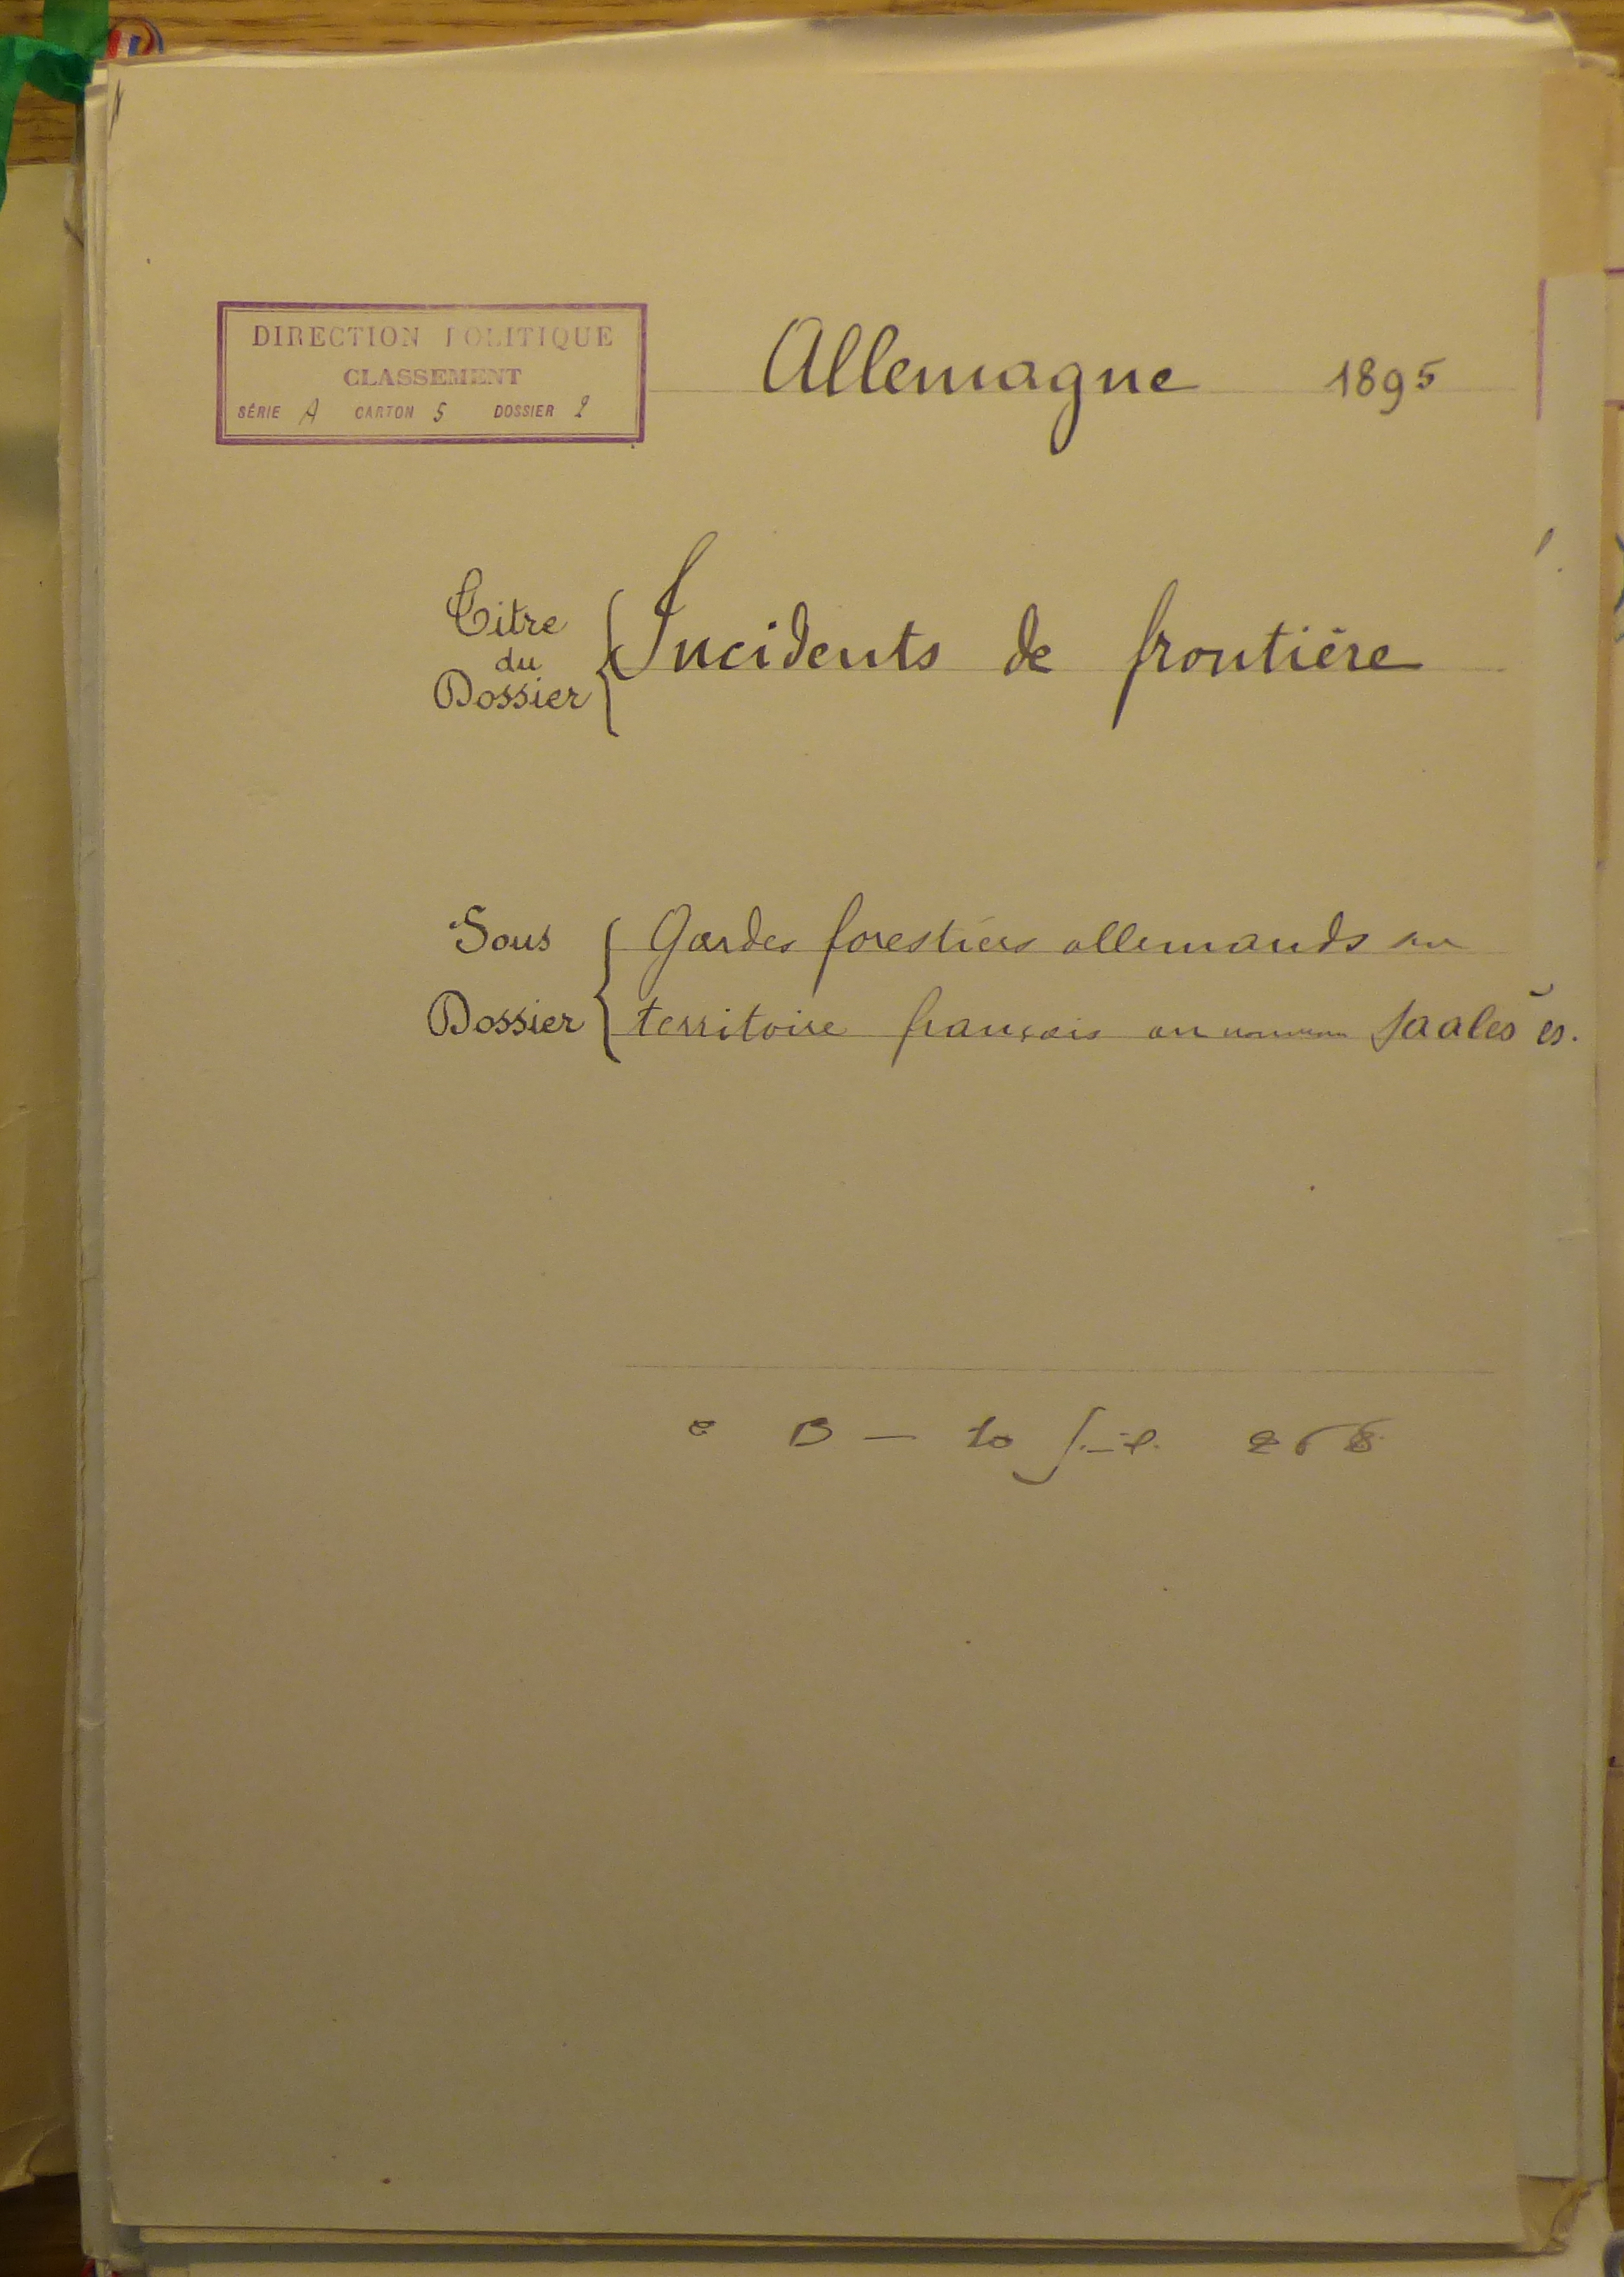 DIRECTION POLITIQUE
CLASSEMENT
SÉRIE A CARTON 5 DOSSIER 2
Allemagne 1895
Titre
du
Dossier
Incidents de frontière
Sous
Dossier
Gardes forestiers allemands sur
territoire français Saales